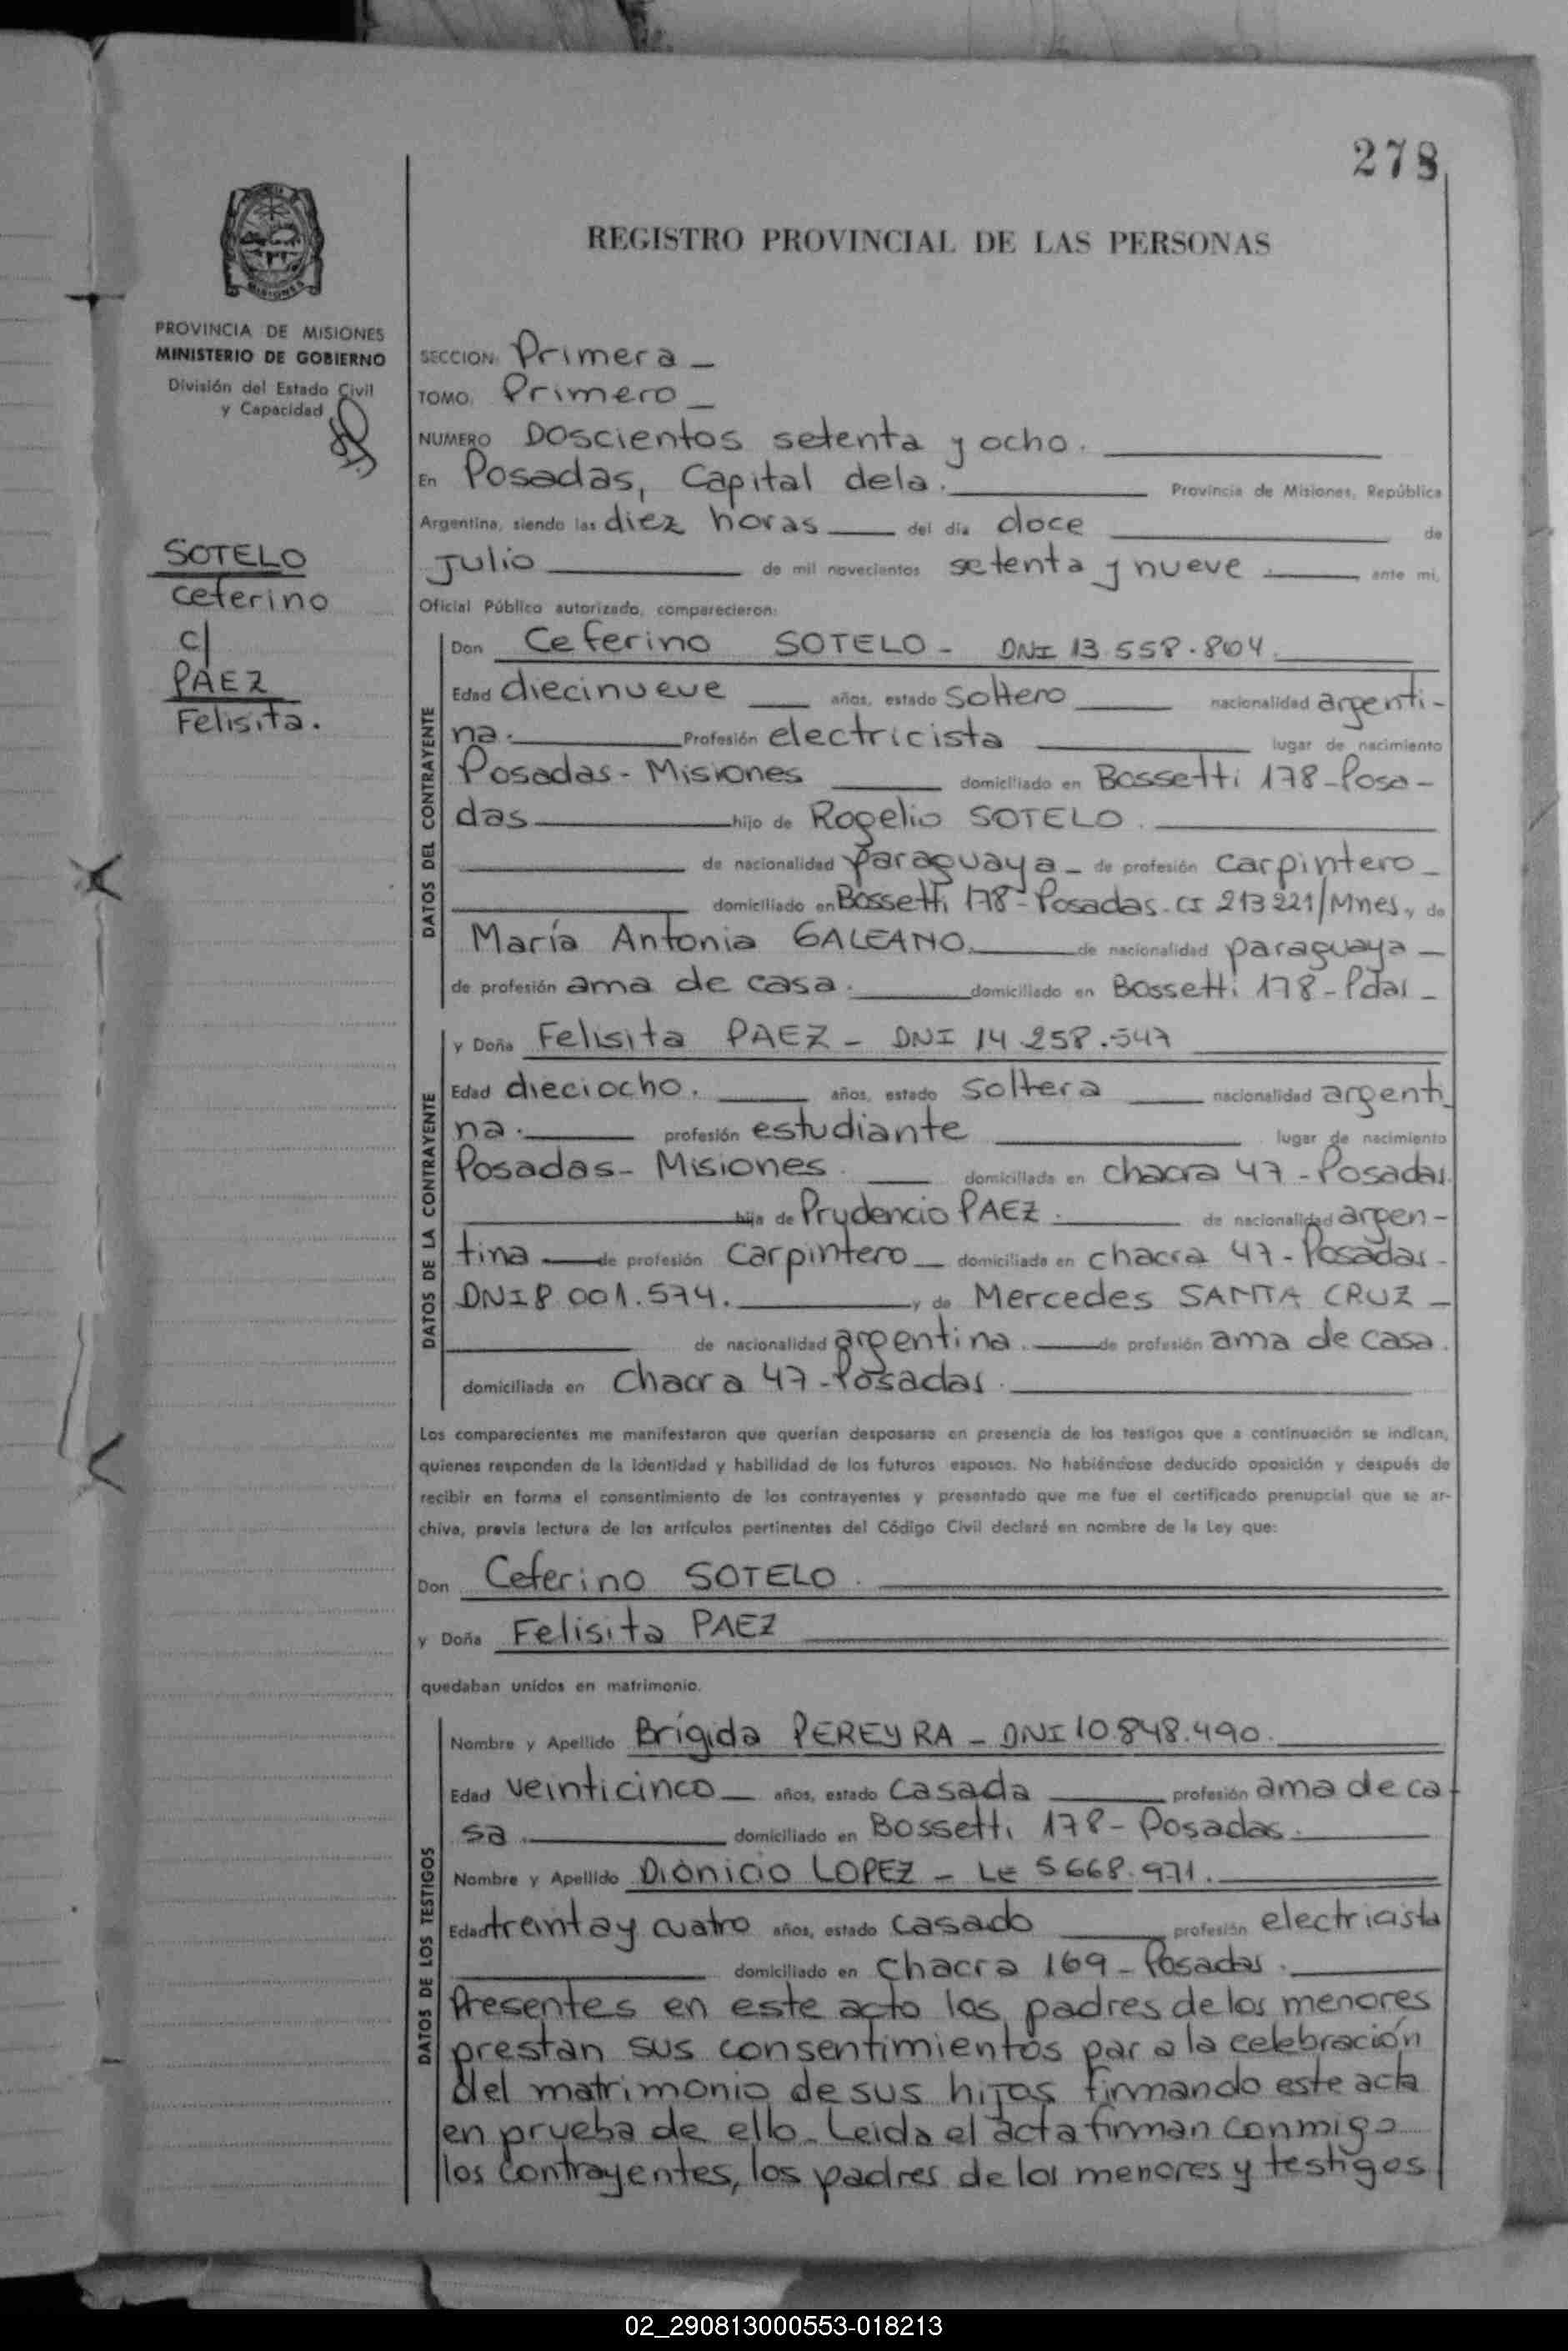 278
REGISTRO PROVINCIAL DE LAS PERSONAS
MISIONES
PROVINCIA DE MISIONES
MINISTERIO DE GOBIERNO
División del Estado Civil
y Capacidad
SOTELO
Ceferino
c/
PAEZ
Felisita.
SECCION: Primera _
TOMO: Primero _
NUMERO Doscientos setenta y ocho.
En Posadas, Capital de la. Provincia de Misiones, República
Argentina, siendo las diez horas del día doce de
Julio de mil novecientos setenta y nueve ante mi,
Oficial Público autorizado, comparecieron:
DATOS DEL CONTRAYENTE
Don Ceferino SOTELO - DNI 13.558.804.
Edad diecinueve años, estado soltero nacionalidad argenti-
na. Profesión electricista lugar de nacimiento
Posadas - Misiones domiciliado en Bossetti 178 - Posa-
das hijo de Rogelio SOTELO.
de nacionalidad paraguaya - de profesión carpintero -
domiciliado en Bossetti 178 - Posadas - CI 213221/Mnes, y de
María Antonia GALEANO. de nacionalidad paraguaya -
de profesión ama de casa. domiciliado en Bossetti 178 - Pdas -
DATOS DE LA CONTRAYENTE
y Doña Felisita PAEZ - DNI 14.258.547
Edad dieciocho. años, estado soltera nacionalidad argenti_
na. profesión estudiante lugar de nacimiento
Posadas - Misiones. domiciliada en chacra 47 - Posadas.
hija de Prudencio PAEZ. de nacionalidad argen-
tina de profesión carpintero _ domiciliada en chacra 47 - Posadas -
DNI 8 001.574. y de Mercedes SANTA CRUZ -
de nacionalidad argentina. de profesión ama de casa.
domiciliada en Chacra 47 - Posadas.
Los comparecientes me manifestaron que querían desposarse en presencia de los testigos que a continuación se indican,
quienes responden de la identidad y habilidad de los futuros esposos. No habiéndose deducido oposición y después de
recibir en forma el consentimiento de los contrayentes y presentado que me fue el certificado prenupcial que se ar-
chiva, previa lectura de los artículos pertinentes del Código Civil declaré en nombre de la Ley que:
Don Ceferino SOTELO.
y Doña Felisita PAEZ
quedaban unidos en matrimonio.
DATOS DE LOS TESTIGOS
Nombre y Apellido Brígida PEREYRA - DNI 10.848.490.
Edad veinticinco _ años, estado casada profesión ama de ca-
sa. domiciliado en Bossetti 178 - Posadas.
Nombre y Apellido Dionicio LOPEZ - LE 5668.971.
Edad treinta y cuatro años, estado casado profesión electricista
domiciliado en chacra 169 - Posadas.
Presentes en este acto los padres de los menores
prestan sus consentimientos para la celebración
del matrimonio de sus hijos firmando este acta
en prueba de ello. Leida el acta firman conmigo
los contrayentes, los padres de los menores y testigos
02_290813000553-018213